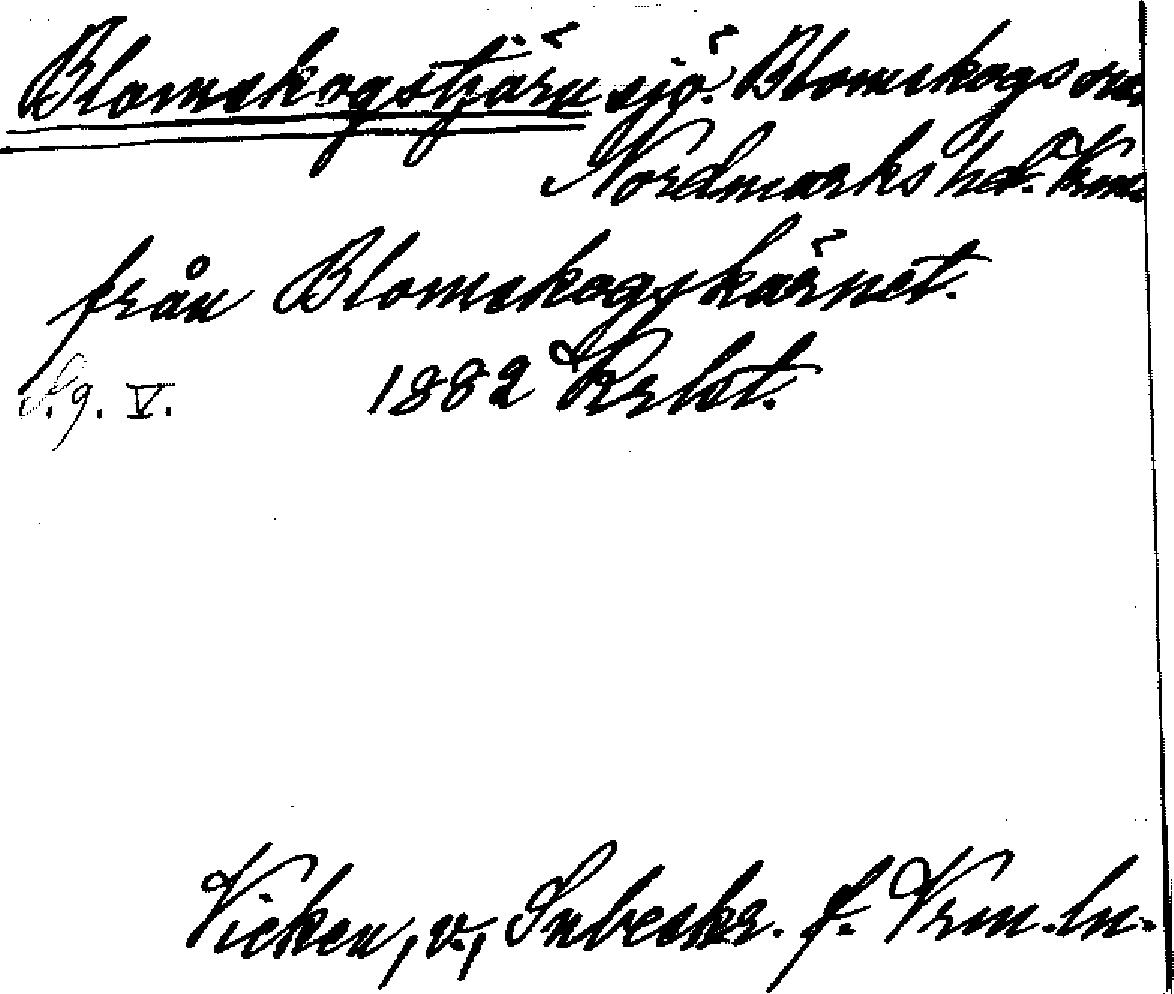 Blomskogstjärn sjö. Blomskogs sn
Nordmarks hd. Vrm.
från Blomskogskärnet.
S.g. V. 1882 Krbt.
Vicken, v., Snbeskr. f. Vrm. ln.